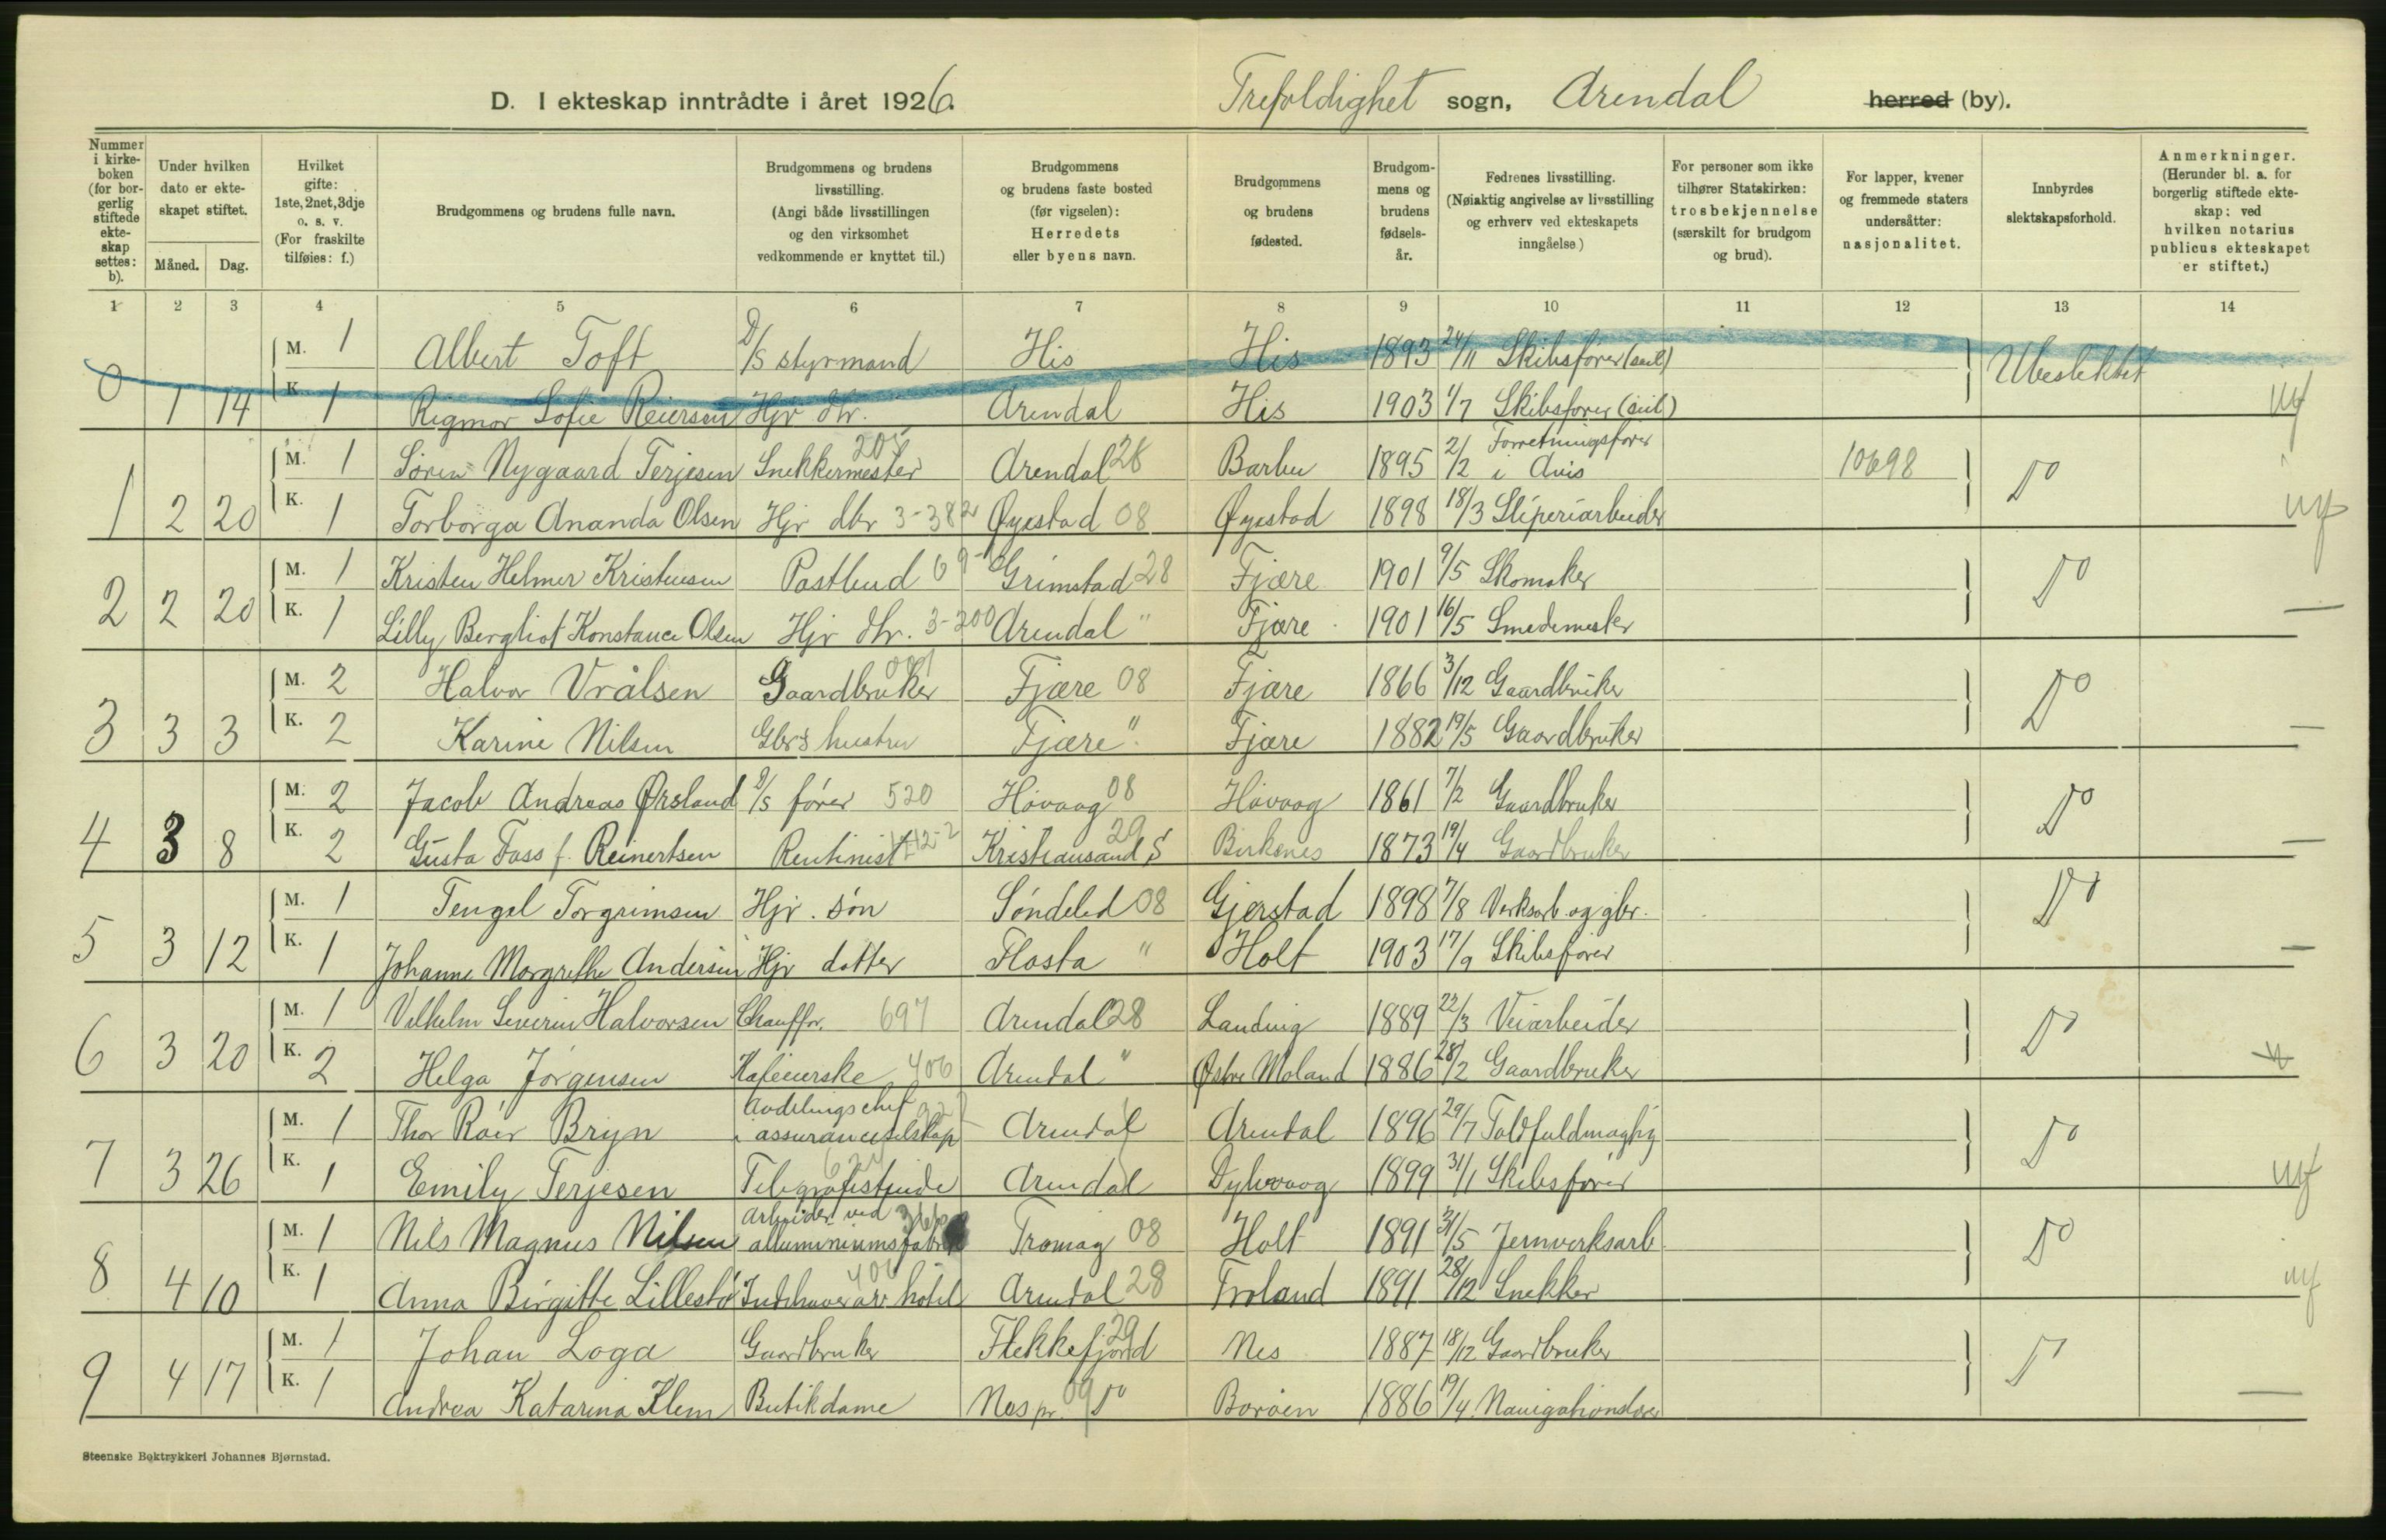 D. I ekteskap inntrådte i året 1926. Trefoldighet sogn, Arendal herred (by).
Nummer i kirkeboken (for borgerlig stiftede ekteskap settes: b).
Under hvilken dato er ekteskapet stiftet. Måned. Dag.
Hvilket gifte: 1ste, 2net, 3dje o. s. v. (For fraskilte tilføies: f.)
Brudgommens og brudens fulle navn.
Brudgommens og brudens livsstilling. (Angi både livsstillingen og den virksomhet vedkommende er knyttet til.)
Brudgommens og brudens faste bosted (før vigselen): Herredets eller byens navn.
Brudgommens og brudens fødested.
Brudgommens og brudens fødselsår.
Fedrenes livsstilling. (Nøiaktig angivelse av livsstilling og erhverv ved ekteskapets inngåelse.)
For personer som ikke tilhører Statskirken: trosbekjennelse (særskilt for brudgom og brud).
For lapper, kvener og fremmede staters undersåtter: nasjonalitet.
Innbyrdes slektskapsforhold.
Anmerkninger. (Herunder bl. a. for borgerlig stiftede ekteskap: ved hvilken notarius publicus ekteskapet er stiftet.)
1 2 3 4 5 6 7 8 9 10 11 12 13 14
M. 1 Albert Toft D/S styrmand His His 1893 24/11 Skibsfører (seil) Ubeslektet
0 1 14 K. 1 Rigmor Sofie Reiersen Hjv dtr. Arendal His 1903 1/7 Skibsfører (seil)
M. 1 Søren Nygaard Terjesen Snekkermester 205 Arendal 28 Barbu 1895 2/2 Forretningsfører i Avis 10698 Do
1 2 20 K. 1 Torborga Ananda Olsen Hjv dtr 3-382 Øyestad 08 Øyestad 1898 18/3 Sliperiarbeider
M. 1 Kristen Helmer Kristensen Postbud Grimstad 28 Fjære 1901 9/5 Skomaker Do
2 2 20 K. 1 Lilly Bergliot Konstance Olsen Hjv dtr. 3-200 Arendal " Fjære 1901 16/5 Smedemester —
M. 2 Halvor Vrålsen Gaardbruker 001 Fjære 08 Fjære 1866 3/12 Gaardbruker Do
3 3 3 K. 2 Karine Nilsen Gbr's hustru Fjære " Fjære 1882 19/5 Gaardbruker —
M. 2 Jacob Andreas Ørsland D/S fører 520 Høvaag 08 Høvaag 1861 7/2 Gaardbruker Do
4 3 8 K. 2 Gusta Foss f. Reinertsen Rentenist Kristiansand S 29 Birkenes 1873 19/4 Gaardbruker —
M. 1 Tengel Torgrimsen Hjv. søn Søndeled 08 Gjerstad 1898 7/8 Verksarb. og gbr. Do
5 3 12 K. 1 Johanne Margrethe Andersen Hjv datter Flosta " Holt 1903 17/9 Skibsfører —
M. 1 Vilhelm Severin Halvorsen Chauffør. 697 Arendal 28 Landvig 1889 22/3 Veiarbeider Do
6 3 20 K. 2 Helga Jørgensen Kafeeierske 406 Arendal " Østre Moland 1886 28/2 Gaardbruker
M. 1 Thor Roar Bryn Avdelingschef i assuranceselskap Arendal Arendal 1896 29/7 Toldfuldmægtig Do
7 3 26 K. 1 Emily Terjesen Telegrafistinde Arendal Dybvaag 1899 31/1 Skibsfører
M. 1 Nils Magnus Nilsen Arbeider ved alluminiumsfabrik Tromøy 08 Holt 1891 31/5 Jernverksarb Do
8 4 10 K. 1 Anna Birgitte Lillestø Indehaver av hotel 406 Arendal 28 Froland 1891 28/12 Snekker
M. 1 Johan Loga Gaardbruker Flekkefjord 29 Nes 1887 18/12 Gaardbruker Do
9 4 17 K. 1 Andrea Katarina Klem Butikdame Nes pr. Do 09 Borøen 1886 19/4 Navigationslærer —
Steenske Boktrykkeri Johannes Bjørnstad.